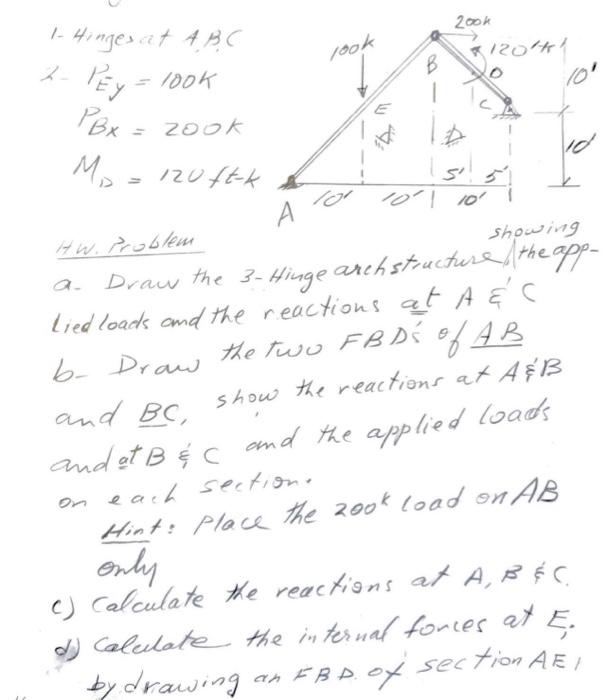 1- Hinges at A,B,C
2- PEy = 100K
PBx = 200K
MD = 120 ft-k
200k
100k
120'k
B
D
10'
E
C
10'
5' 5'
10' 10' 10'
A
H.W. Problem
showing
a- Draw the 3-Hinge arch structure the app-
lied loads and the reactions at A & C
b- Draw the two FBD's of AB
and BC, show the reactions at A & B
and at B & C and the applied loads
on each section.
Hint: Place the 200k load on AB
only
c) Calculate the reactions at A, B & C.
d) Calculate the internal forces at E;
by drawing an FBD. of section AE,